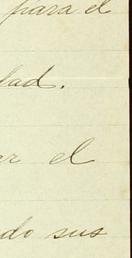 para el
dad.
ar el
do sus